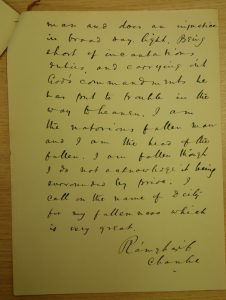 man and does an injustice
in broad day light. Being
short of incantations
duties and carrying out
God's commandments he
was put to trouble in the
way to heaven. I am
the notorious fallen man
and I am the head of the
fallen. I am fallen though
I do not acknowledge it being
surrounded by pride. I
call on the name of Deity
for my fallenness which
is very great.